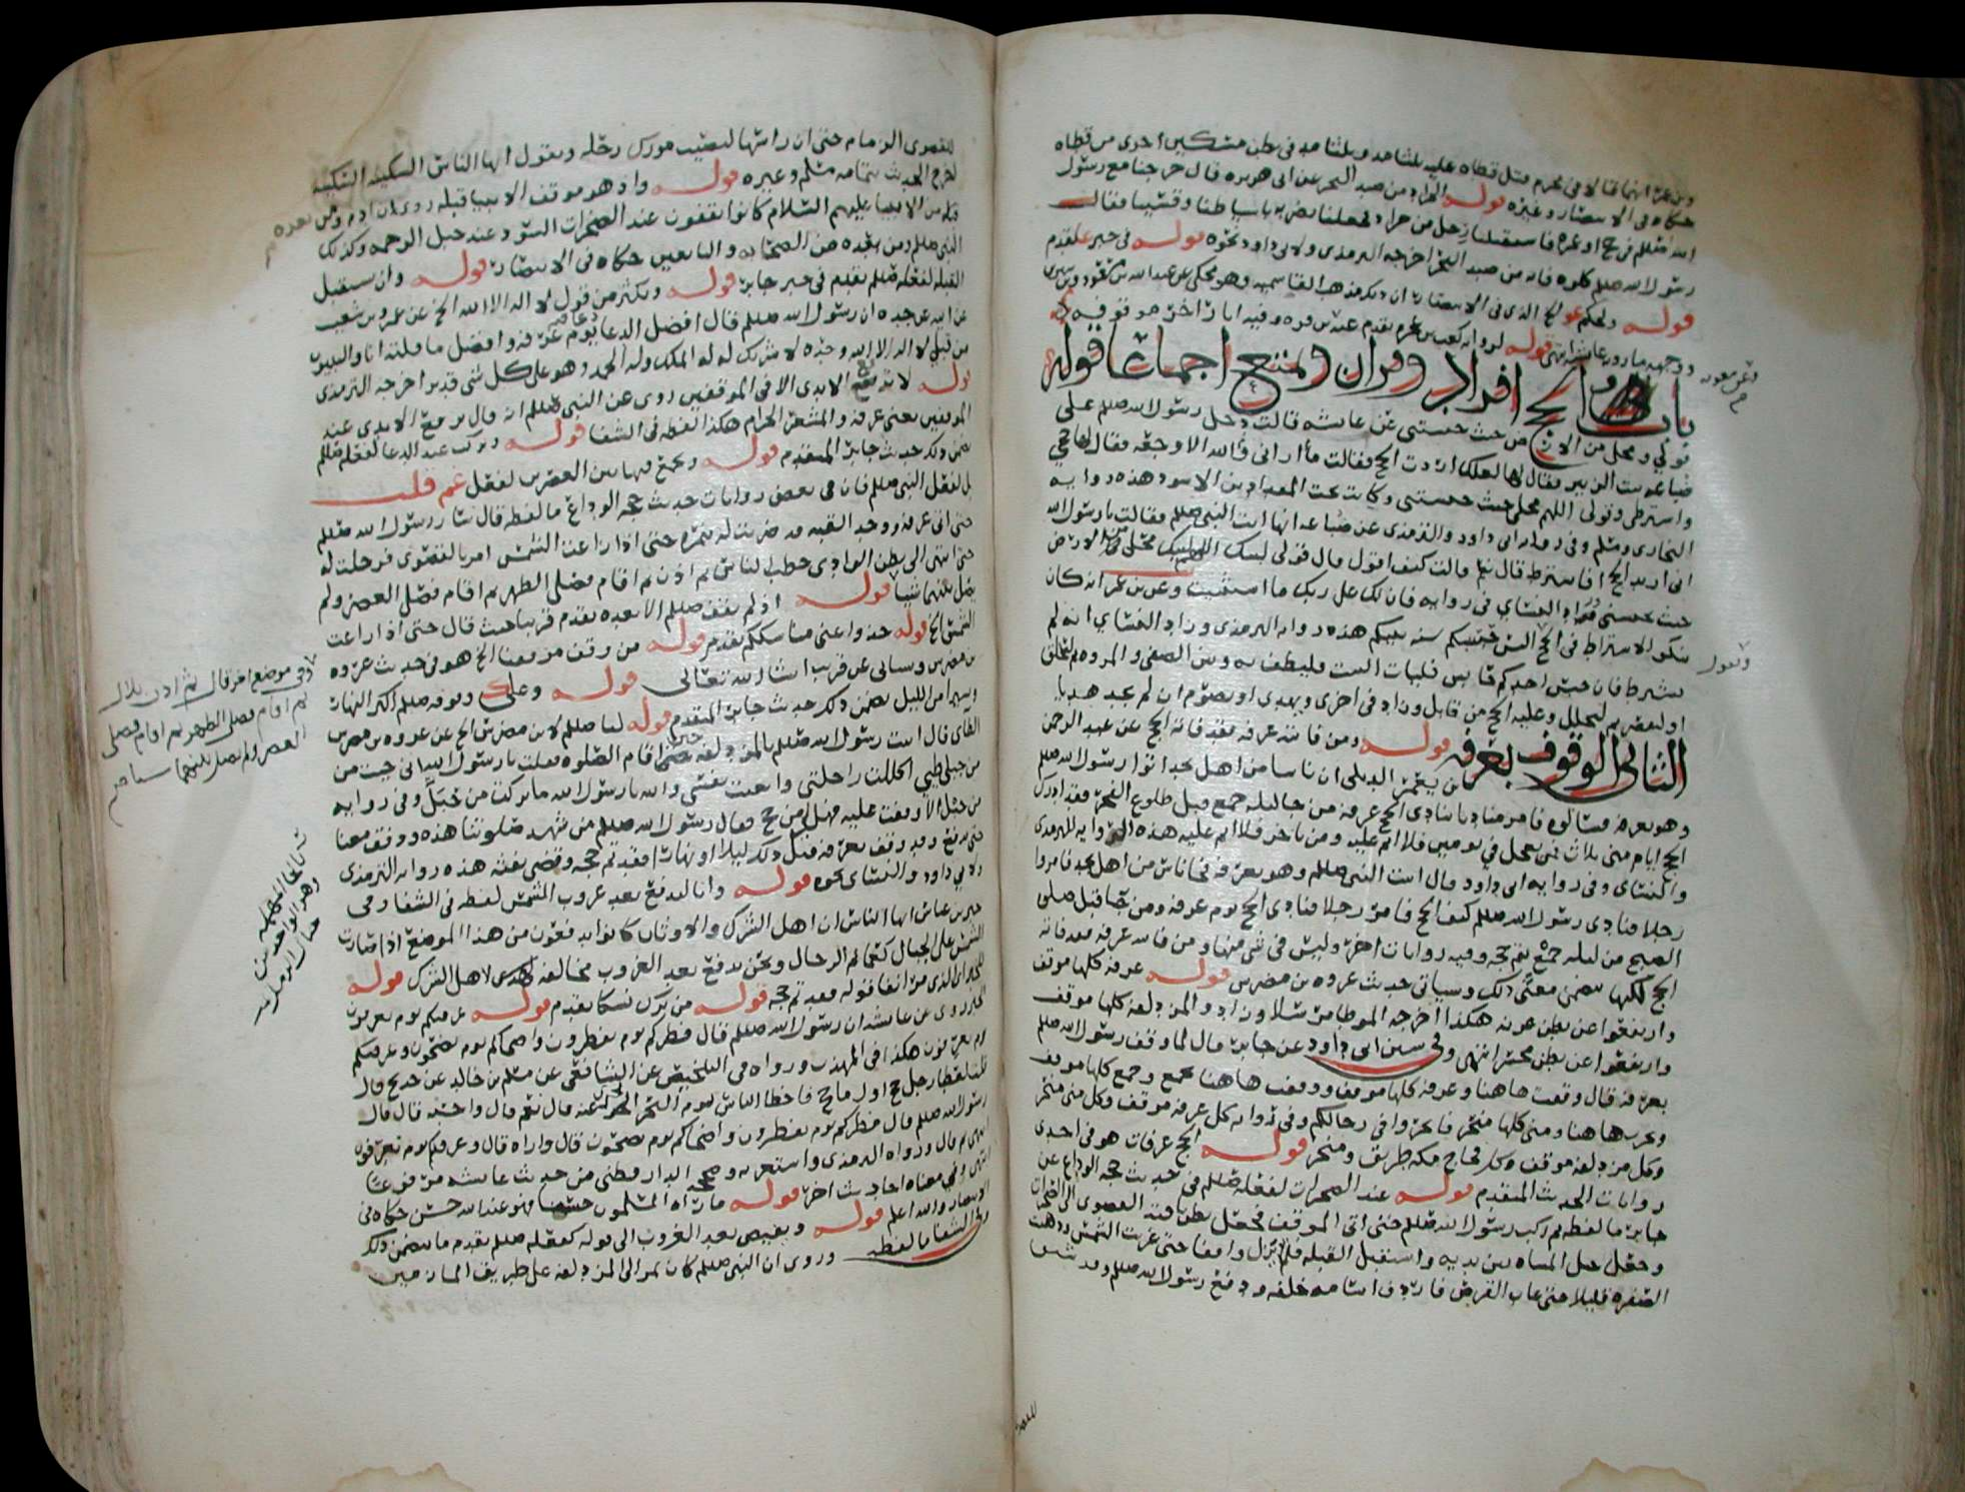 وبن عمر انهما قالا في محرم قتل قطاه عليه ثلثا مد وثلثا مد في بطن مسكين احرى من قطاه
حكاه في الانتصار وغيره قوله الجراد من صيد البحر عن ابى هريره قال خرجنا مع رسول
الله صللم في حج او عمره فاستقبلنا رجل من جراد فجعلنا نضربه باسياطنا وقسينا فقال
رسول الله صللم كلوه فانه من صيد البحر اخرجه الترمذى ولابى داود نحوه قوله في خبر علي تقدم
باب والحج افراد وقران وتمتع اجماعا قوله
قولي ومحلى من الارض حيث حبستنى عن عايشه قالت دخل رسول الله صللم على
ضباعه بنت الزبير فقال لها لعلك اردت الحج فقالت ما ارانى والله الا وجعه فقال لها حجي
واشترطى وقولى اللهم محلى حيث حبستنى وكانت تحت المقداد بن الاسود هذه روايه
البخارى ومسلم وفى روايه ابى داود والترمذى عن ضباعه انها اتت النبى صللم فقالت يا رسول الله
انى اريد الحج افاشترط قال نعم قالت كيف اقول قال قولى لبيك اللهم لبيك محلى من الارض
حيث تحبسنى وزاد النساي في روايه فان لك على ربك ما استثنيت وعن بن عمر انه كان
ينكر الاشتراط فى الحج اليس حسبكم سنه نبيكم هذه روايه الترمذى وزاد النساي انه لم
يشترط فان حبس احدكم حابس فليات البيت فليطف به وبين الصفى والمروه ثم ليحلق
او ليقصر ثم ليحلل وعليه الحج من قابل وزاد في اخرى ويهدى او يصوم ان لم يجد هديا
الثانى الوقوف بعرفه قوله ومن فاته عرفه فقد فاته الحج عن عبد الرحمن
بن يعمر الديلى ان ناسا من اهل نجد اتوا رسول الله صللم
وهو بعرفه فسالوه فامر مناديا ينادى الحج عرفه من جا ليله جمع قبل طلوع الفجر فقد ادرك
الحج ايام منى ثلاث فمن تعجل في يومين فلا اثم عليه ومن تاخر فلا اثم عليه هذه الروايه للترمذى
والنساي وفى روايه ابى داود قال اتيت النبى صللم وهو بعرفه فجا ناس من اهل نجد فامروا
رجلا فنادى رسول الله صللم كيف الحج فامر رجلا فنادى الحج يوم عرفه ومن جا قبل صلوه
الصبح من ليله جمع فتم حجه وفيه روايات اخر وليس في شى منها ومن فاته عرفه فقد فاته
الحج لكنها تضمن معنى ذلك وسياتى حديث عروه بن مضرس قوله عرفه كلها موقف
وارتفعوا عن بطن عرنه هكذا اخرجه الموطا مرسلا وزاد والمزدلفه كلها موقف
وارتفعوا عن بطن محسر انتهى وفي سنن ابى داود عن جابر قال لما وقف رسول الله صللم
بعرفه قال وقفت هاهنا وعرفه كلها موقف ووقفت هاهنا بجمع وجمع كلها موقف
ونحرت هاهنا ومنى كلها منحر فانحروا في رحالكم وفى روايه كل عرفه موقف وكل منى منحر
وكل مزدلفه موقف وكل فجاج مكه طريق ومنحر قوله الحج عرفات هو في احدى
روايات الحديث المتقدم قوله عند الصخرات لفعله صللم في حديث حجه الوداع عن
جابر ما لفظه ثم ركب رسول الله صللم حتى اتى الموقف فجعل بطن ناقته القصوى الى الصخرات
وجعل حبل المشاه بين يديه واستقبل القبله فلم يزل واقفا حتى غربت الشمس وذهبت
الصفره قليلا حتى غاب القرص فاردف اسامه خلفه ودفع رسول الله صللم وقد شنق
للقصوى
للقصوى الزمام حتى ان راسها ليصيب مورك رحله ويقول ايها الناس السكينه السكينه
اخرج الحديث بتمامه مسلم وغيره قوله واذ هو موقف الانبيا قبله روى ان ادم ومن بعده
من الانبيا عليهم السلام كانوا يقفون عند الصخرات السود عند حبل الرحمه وكذلك
النبى صللم ومن بعده من الصحابه والتابعين حكاه فى الانتصار قوله وان يستقبل
القبله لفعله صللم تقدم في خبر جابر قوله ويكثر من قول لا اله الا الله الخ عن عمرو بن شعيب
عن ابيه عن جده ان رسول الله صللم قال افضل الدعا دعا يوم عرفه وافضل ما قلته انا والنبيون
من قبلى لا اله الا الله وحده لا شريك له له الملك وله الحمد وهو على كل شى قدير اخرجه الترمذى
قوله لا ترفع الايدى الا في الموقفين روى عن النبى صللم انه قال ترفع الايدى عند
الموقفين يعنى عرفه والمشعر الحرام هكذا لفظه في الشفا قوله ويركب عند الدعا لفعله صللم
تضمن ذلك حديث جابر المتقدم قوله ويجمع فيها بين العصرين لفعل عمر قلت
بل لفعل النبى صللم فان في بعض روايات حديث حجه الوداع ما لفظه قال سار رسول الله صللم
حتى اتى عرفه ووجد القبه قد ضربت له بنمره حتى اذا زاغت الشمس امر بالقصوى فرحلت له
حتى انتهى الى بطن الوادى خطب الناس ثم اذن ثم اقام فصلى الظهر ثم اقام فصلى العصر ولم
يصل بينهما شيا قوله اذ لم يقف صللم الا بعده تقدم قريبا حيث قال حتى اذا زاغت
الشمس الخ قوله خذوا عنى مناسككم تقدم قوله من وقف موقفنا الخ هو في حديث عروه
بن مضرس وسياتى عن قريب ان شا الله تعالى قوله وعلى ووقوفه صللم اكثر النهار
ويسيرا من الليل تضمن ذلك حديث جابر المتقدم قوله لنا صللم لابن مضرس الخ عن عروه بن مضرس
الطاى قال اتيت رسول الله صللم بالمزدلفه حين اقام الصلوه فقلت يا رسول الله انى جيت من
من جبلى طيى اكللت راحلتى واتعبت نفسى والله يا رسول الله ما تركت من حبل وفى روايه
من جبل الا وقفت عليه فهل لى من حج فقال رسول الله صللم من شهد صلوتنا هذه ووقف معنا
حتى ندفع وقد وقف بعرفه قبل ذلك ليلا او نهارا فقد تم حجه وقضى تفثه هذه روايه الترمذى
ولابى داود والنساى نحوه قوله وانا لندفع بعد غروب الشمس لفظه في الشفا وفى
خبر بن عباس ايها الناس ان اهل الشرك والاوثان كانوا يدفعون من هذا الموضع اذا صارت
الشمس على الجبال كعمايم الرجال ونحن ندفع بعد الغروب مخالفه لهدى لاهل الشرك قوله
قوله فقد تم حجه قوله من ترك نسكا تقدم قوله عرفتكم يوم تعرفون
روى عن عايشه ان رسول الله صللم قال فطركم يوم تفطرون واضحاكم يوم تضحون وعرفتكم
يوم تعرفون هكذا في المهذب ورواه في التلخيص عن الشافعى عن مسلم بن خالد عن بن جريج قال
قلنا لعطا رجل حج اول ما حج فاخطا الناس يوم النحر ايجزى عنه قال نعم قال واحسبه قال قال
رسول الله صللم فطركم يوم تفطرون واضحاكم يوم تضحون قال واراه قال وعرفتكم يوم تعرفون
انتهى ثم قال ورواه الترمذى واستغربه وصححه الدارقطنى من حديث عايشه مرفوعا
انتهى وفي معناه احاديث اخر قوله ما راه المسلمون حسنا فهو عند الله حسن حكاه في
الانتصار والله اعلم قوله ويفيض بعد الغروب الى قوله كفعله صللم تقدم ما تضمن ذلك
وفي الشفا ما لفظه وروى ان النبى صللم كان يمر الى المزدلفه على طريق المازمين
وفي موضع اخر قال ثم اذن بلال
ثم اقام فصلى الظهر ثم اقام فصلى
العصر ولم يصل بينهما شيا